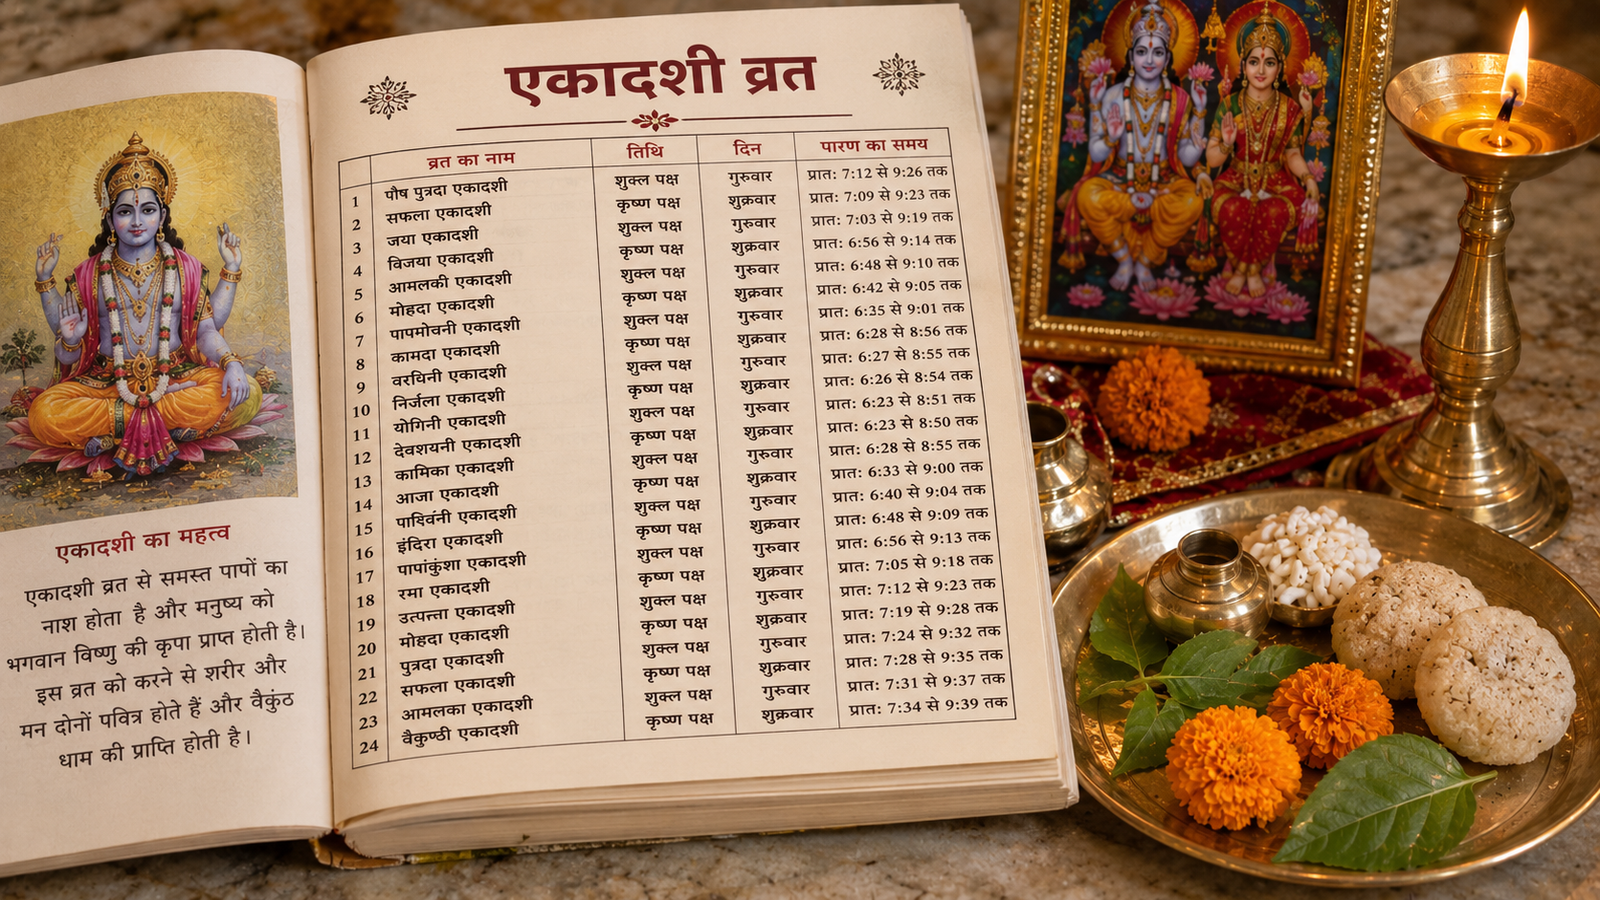 एकादशी का महत्व
एकादशी व्रत से समस्त पापों का
नाश होता है और मनुष्य को
भगवान विष्णु की कृपा प्राप्त होती है।
इस व्रत को करने से शरीर और
मन दोनों पवित्र होते हैं और वैकुंठ
धाम की प्राप्ति होती है।
एकादशी व्रत
व्रत का नाम तिथि दिन पारण का समय
1 पौष पुत्रदा एकादशी शुक्ल पक्ष गुरुवार प्रात: 7:12 से 9:26 तक
2 सफला एकादशी कृष्ण पक्ष शुक्रवार प्रात: 7:09 से 9:23 तक
3 जया एकादशी शुक्ल पक्ष गुरुवार प्रात: 7:03 से 9:19 तक
4 विजया एकादशी कृष्ण पक्ष शुक्रवार प्रात: 6:56 से 9:14 तक
5 आमलकी एकादशी शुक्ल पक्ष गुरुवार प्रात: 6:48 से 9:10 तक
6 मोहदा एकादशी कृष्ण पक्ष शुक्रवार प्रात: 6:42 से 9:05 तक
7 पापमोचनी एकादशी शुक्ल पक्ष गुरुवार प्रात: 6:35 से 9:01 तक
8 कामदा एकादशी कृष्ण पक्ष शुक्रवार प्रात: 6:28 से 8:56 तक
9 वरथिनी एकादशी शुक्ल पक्ष गुरुवार प्रात: 6:27 से 8:55 तक
10 निर्जला एकादशी कृष्ण पक्ष शुक्रवार प्रात: 6:26 से 8:54 तक
11 योगिनी एकादशी शुक्ल पक्ष गुरुवार प्रात: 6:23 से 8:51 तक
12 देवशयनी एकादशी कृष्ण पक्ष शुक्रवार प्रात: 6:23 से 8:50 तक
13 कामिका एकादशी शुक्ल पक्ष गुरुवार प्रात: 6:28 से 8:55 तक
14 आजा एकादशी कृष्ण पक्ष शुक्रवार प्रात: 6:33 से 9:00 तक
15 एकादशी शुक्ल पक्ष गुरुवार प्रात: 6:40 से 9:04 तक
16 इंदिरा एकादशी कृष्ण पक्ष शुक्रवार प्रात: 6:48 से 9:09 तक
17 पापांकुंशा एकादशी शुक्ल पक्ष गुरुवार प्रात: 6:56 से 9:13 तक
18 रमा एकादशी कृष्ण पक्ष शुक्रवार प्रात: 7:05 से 9:18 तक
19 एकादशी शुक्ल पक्ष गुरुवार प्रात: 7:12 से 9:23 तक
20 मोहदा एकादशी कृष्ण पक्ष शुक्रवार प्रात: 7:19 से 9:28 तक
21 पुत्रदा एकादशी शुक्ल पक्ष गुरुवार प्रात: 7:24 से 9:32 तक
22 सफला एकादशी कृष्ण पक्ष शुक्रवार प्रात: 7:28 से 9:35 तक
23 आमलका एकादशी शुक्ल पक्ष गुरुवार प्रात: 7:31 से 9:37 तक
24 वैकुण्ठी एकादशी कृष्ण पक्ष शुक्रवार प्रात: 7:34 से 9:39 तक